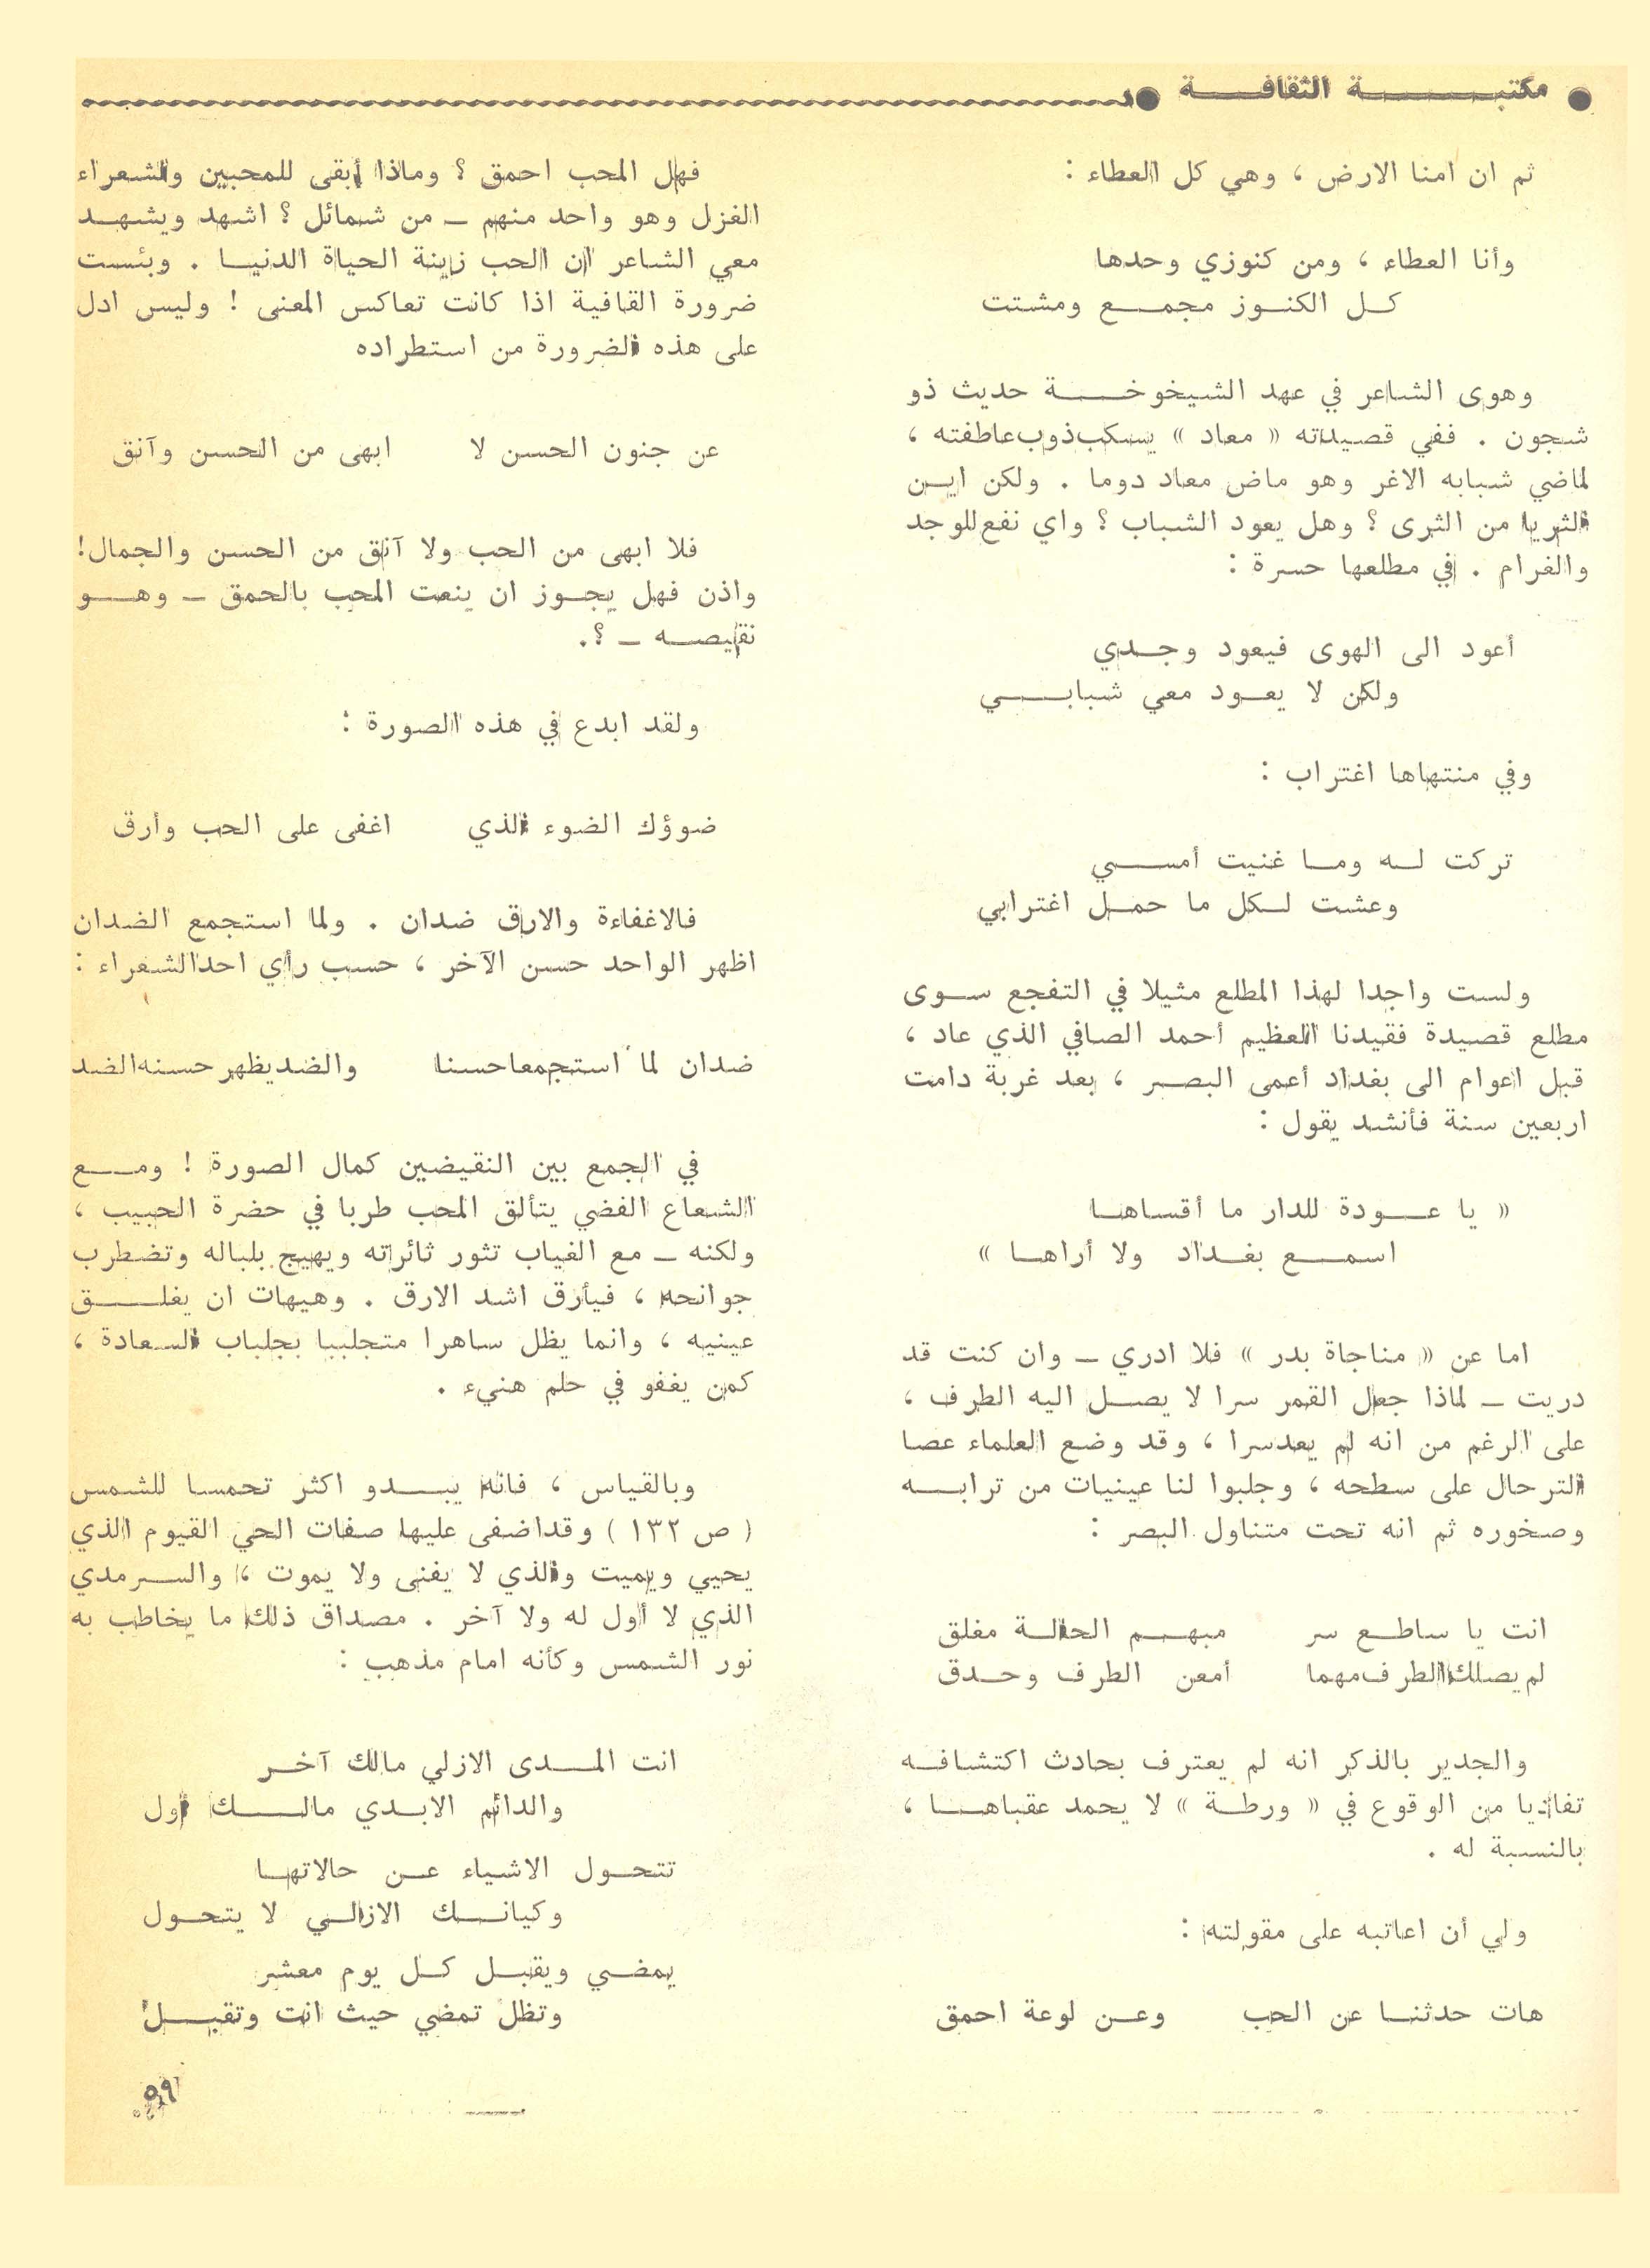 ● مكتبة الثقافة ●
ثم ان امنا الارض ، وهي كل العطاء :
وأنا العطاء ، ومن كنوزي وحدها
كل الكنوز مجمع ومشتت
وهوى الشاعر في عهد الشيخوخة حديث ذو
شجون . ففي قصيدته « معاد » يسكب ذوب عاطفته ،
لماضي شبابه الاغر وهو ماض معاد دوما . ولكن اين
الثريا من الثرى ؟ وهل يعود الشباب ؟ واي نفع للوجد
والغرام . في مطلعها حسرة :
أعود الى الهوى فيعود وجدي
ولكن لا يعود معي شبابي
وفي منتهاها اغتراب :
تركت له وما غنيت أمسي
وعشت لكل ما حمل اغترابي
ولست واجدا لهذا المطلع مثيلا في التفجع سوى
مطلع قصيدة فقيدنا العظيم أحمد الصافي الذي عاد ،
قبل اعوام الى بغداد أعمى البصر ، بعد غربة دامت
اربعين سنة فأنشد يقول :
« يا عودة للدار ما أقساها
اسمع بغداد ولا أراها »
اما عن « مناجاة بدر » فلا ادري ــ وان كنت قد
دريت ــ لماذا جعل القمر سرا لا يصل اليه الطرف ،
على الرغم من انه لم يعد سرا ، وقد وضع العلماء عصا
الترحال على سطحه ، وجلبوا لنا عينيات من ترابه
وصخوره ثم انه تحت متناول البصر :
انت يا ساطع سر مبهم الحالة مغلق
لم يصلك الطرف مهما أمعن الطرف وحدق
والجدير بالذكر انه لم يعترف بحادث اكتشافه
تفاديا من الوقوع في « ورطة » لا يحمد عقباها ،
بالنسبة له .
ولي أن اعاتبه على مقولته :
هات حدثنا عن الحب وعن لوعة احمق
فهل المحب احمق ؟ وماذا أبقى للمحبين والشعراء
الغزل وهو واحد منهم ــ من شمائل ؟ اشهد ويشهد
معي الشاعر ان الحب زينة الحياة الدنيا . وبئست
ضرورة القافية اذا كانت تعاكس المعنى ! وليس ادل
على هذه الضرورة من استطراده
عن جنون الحسن لا ابهى من الحسن وآنق
فلا ابهى من الحب ولا آنق من الحسن والجمال!
واذن فهل يجوز ان ينعت المحب بالحمق ــ وهو
نقيصه ــ ؟.
ولقد ابدع في هذه الصورة :
ضوؤك الضوء الذي اغفى على الحب وأرق
فالاغفاءة والارق ضدان . ولما استجمع الضدان
اظهر الواحد حسن الآخر ، حسب رأي احد الشعراء :
ضدان لما استجمعا حسنا والضد يظهر حسنه الضد
في الجمع بين النقيضين كمال الصورة ! ومع
الشعاع الفضي يتألق المحب طربا في حضرة الحبيب ،
ولكنه ــ مع الغياب تثور ثائرته ويهيج بلباله وتضطرب
جوانحه ، فيأرق اشد الارق . وهيهات ان يغلق
عينيه ، وانما يظل ساهرا متجلببا بجلباب السعادة ،
كمن يغفو في حلم هنيء .
وبالقياس ، فانه يبدو اكثر تحمسا للشمس
( ص ١٣٢ ) وقد اضفى عليها صفات الحي القيوم الذي
يحيي ويميت والذي لا يفنى ولا يموت ، والسرمدي
الذي لا أول له ولا آخر . مصداق ذلك ما يخاطب به
نور الشمس وكأنه امام مذهب :
انت المدى الازلي مالك آخر
والدائم الابدي مالك اول
تتحول الاشياء عن حالاتها
وكيانك الازلي لا يتحول
يمضي ويقبل كل يوم معشر
وتظل تمضي حيث انت وتقبل
٥٩